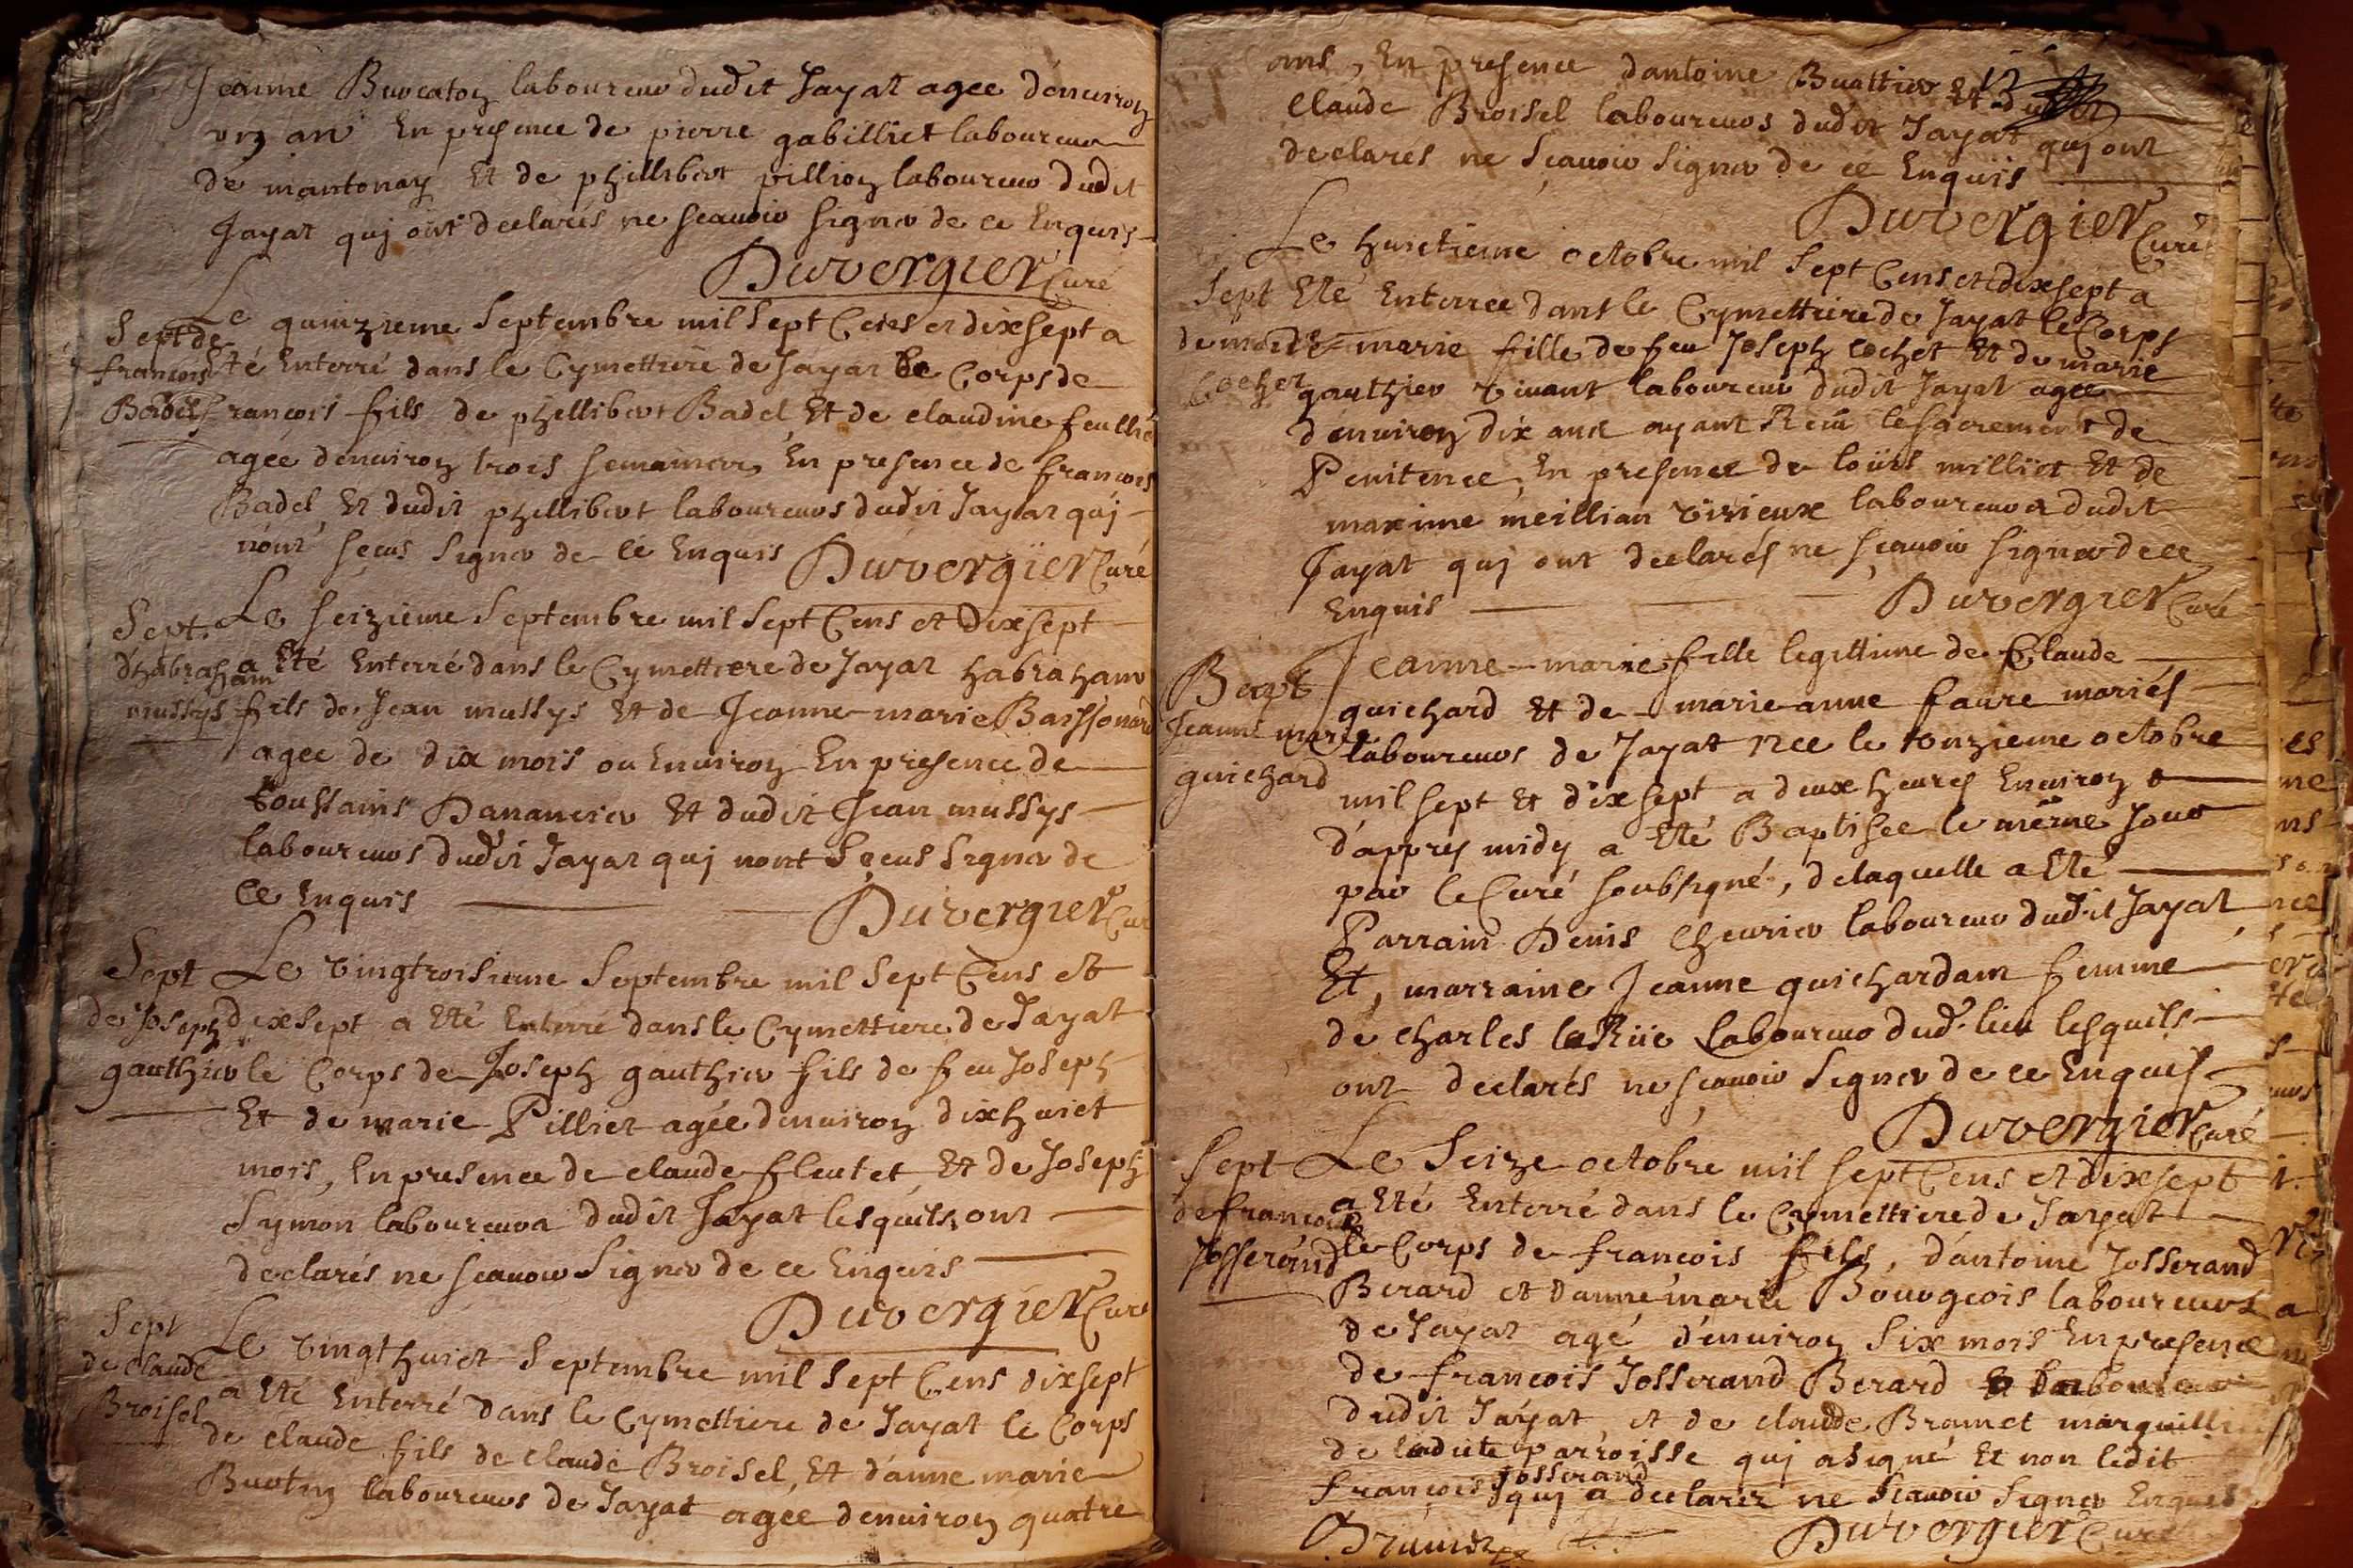 Jeanne Buvcaton laboureur dudit Jayat agee d'enuiron
un an En presence de pierre gabilliet laboureur
de mantenay Et de phillibert pillion laboureur dudit
Jayat quj ont declarés ne scauoir signer de ce Enquis
Duvergier Curé
Le quinzieme Septembre mil Sept Cens et dixsept a
Sept de
été Enterré dans le Cymettiere de Jayat le Corps de
francois
Badel
francois fils de phillibert Badel, Et de claudine feullie
agée denuiron trois semaines, En presence de francois
Badel, Et dudit phillibert laboureurs dudit Jayat quj
n'ont sceus Signer de ce Enquis Duvergier Curé
Sept. Le seizieme Septembre mil Sept Cens et Dixsept
d'habraham a Eté Enterré dans le Cymettiere de Jayat habraham
mussys fils de Jean mussys Et de Jeanne-marie Baissonard
agee de dix mois ou Enuiron En presence de
toussains Danancier Et dudit Jean mussys
laboureurs dudit Jayat quj nont Sceus Signer de
ce Enquis Duvergier Cur
Sept Le vingtroisieme Septembre mil Sept Cens et
de Joseph dixsept a Eté Enterré dans le Cymettiere de Jayat
gauthier le Corps de Joseph gauthier fils de feu Joseph
Et de marie Pilliet agée denuiron dixhuict
mois, En presence de claude fleutet, Et de Joseph
Symon laboureurs dudit Jayat lesquels ont
declarés ne scauoir Signer de ce Enquis
Duvergier Curé
Sept Le vingthuict Septembre mil Sept Cens dixsept
de claude a Eté Enterré dans le Cymettiere de Jayat le Corps
Broisel de claude fils de claude Broisel, Et d'anne marie
laboureurs de Jayat agee denuiron quatre
ans, En presence dantoine Buattier Et dudit 13
Claude Broisel laboureurs dudit Jayat quj ont
declarés ne Scauoir Signer de ce Enquis
Duvergier Curé
Le huictieme octobre mil Sept Cens et dixsept a
Sept Eté Enterree dans le Cymettiere de Jayat le Corps
de marie de marie fille de feu Joseph cochet Et de marie
Cochet gauthier viuant laboureur dudit Jayat agee
d'enuiron dix ans ayant Receu le sacrement de
Penitence, En presence de loüis milliet Et de
maxime meillian virieux laboureurs dudit
Jayat quj ont declarés ne scauoir signer de ce
Enquis Duvergier Curé
Bapt Jeanne-marie fille legittime de Claude
guichard Et de marie anne faure mariés
Jeanne marie laboureurs de Jayat nee le onzieme octobre
guichard mil sept Et dixsept a deux heures Enuiron
d'appres midy a Eté Baptisee le même Jour
par le Curé soubsigné, de laquelle a Eté
Parrain Denis Cheurier laboureur dudit Jayat,
Et, marraine Jeanne guichardam femme
de charles laRüe laboureur dud. lieu lesquels
ont declarés ne scauoir Signer de ce Enquis
Duvergier Curé
Sept Le Seize octobre mil sept Cens et dixsept
de francois a Eté Enterré dans le Cymettiere de Jayat
Josserand le Corps de francois fils, d'antoine Josserand
Berard et d'anne marie Bourgeois laboureurs
de Jayat agé d'enuiron six mois En presence
de francois Josserand Berard laboureur
dudit Jayat et de claude Bramet marguilli
de ladite parroisse quj a signé Et non ledit
francois Josserand quj a declarer ne Scauoir Signer Enquis
Bramet Duvergier Curé